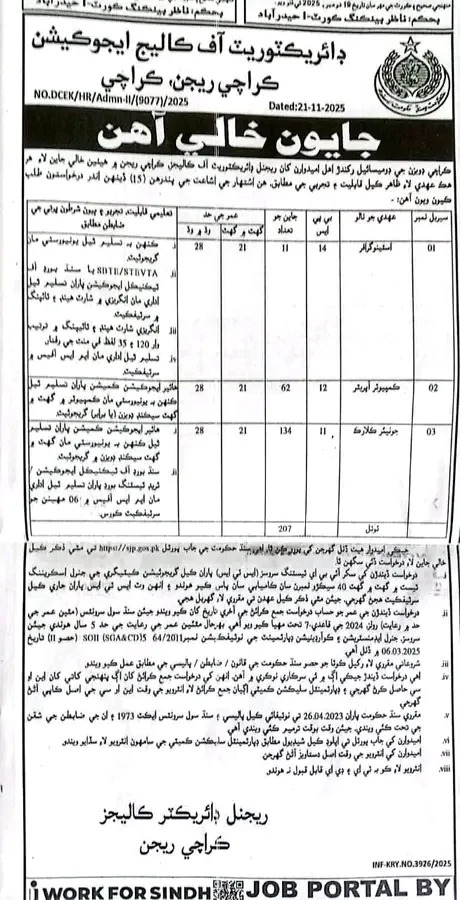 بحڪم: ناظر بينڪنگ ڪورٽ-I حيدرآباد
ڊائريڪٽوريٽ آف ڪاليج ايجوڪيشن
ڪراچي ريجن، ڪراچي
NO.DCEK/HR/Admn-II/(9077)/2025
Dated:21-11-2025
جايون خالي آهن
ڪراچي ڊويزن جي ڊوميسائيل رکندڙ اهل اميدوارن کان ريجنل ڊائريڪٽوريٽ آف ڪاليجز ڪراچي ريجن ۾ هيٺين خالي جاين لاءِ هر
هڪ عهدي لاءِ ظاهر ڪيل قابليت ۽ تجربي جي مطابق، هن اشتهار جي اشاعت جي پندرهن (15) ڏينهن اندر درخواستون طلب
ڪيون ويون آهن:
سيريل نمبر
عهدي جو نالو
بي پي ايس
جاين جو تعداد
عمر جي حد
گهٽ ۾ گهٽ
وڌ ۾ وڌ
تعليمي قابليت، تجربو ۽ ٻيون شرطون ڀرتي جي ضابطن مطابق
01
اسٽينوگرافر
14
11
21
28
i. ڪنهن به تسليم ٿيل يونيورسٽي مان
گريجوئيٽ.
ii. SBTE/STEVTA يا سنڌ بورڊ آف
ٽيڪنيڪل ايجوڪيشن پاران تسليم ٿيل
اداري مان انگريزي ۾ شارٽ هينڊ ۽ ٽائپنگ
۾ سرٽيفڪيٽ.
iii. انگريزي شارٽ هينڊ ۽ ٽائيپنگ ۾ ترتيب
وار 120 ۽ 35 لفظ في منٽ جي رفتار.
iv. تسليم ٿيل اداري مان ايم ايس آفيس ۾
سرٽيفڪيٽ.
02
ڪمپيوٽر آپريٽر
12
62
21
28
هائير ايجوڪيشن ڪميشن پاران تسليم ٿيل
ڪنهن به يونيورسٽي مان ڪمپيوٽر ۾ گهٽ ۾
گهٽ سيڪنڊ ڊويزن (يا برابر) گريجوئيٽ.
03
جونيئر ڪلارڪ
11
134
21
28
i. هائير ايجوڪيشن ڪميشن پاران تسليم
ٿيل ڪنهن به يونيورسٽي مان گهٽ ۾ گهٽ
سيڪنڊ ڊويزن ۾ گريجوئيٽ.
ii. سنڌ بورڊ آف ٽيڪنيڪل ايجوڪيشن /
ٽريڊ ٽيسٽنگ بورڊ پاران تسليم ٿيل اداري
مان ايم ايس آفيس ۾ 06 مهينن جو
سرٽيفڪيٽ ڪورس.
ٽوٽل
207
سنڌ حڪومت جي جاب پورٽل https://sjp.gos.pk تي
خالي جاين لاءِ درخواست ڏئي سگهن ٿا
i. درخواست ڏيندڙن کي سکر آئي بي اي ٽيسٽنگ سروسز (ايس ٽي ايس) پاران ڪيل گريجوئيشن ڪيٽيگري جي جنرل اسڪريننگ
ٽيسٽ ۾ گهٽ ۾ گهٽ 40 سيڪڙو نمبرن سان ڪاميابي سان پاس ڪيو هوندو ۽ انهن وٽ ايس ٽي ايس پاران جاري ڪيل
سرٽيفڪيٽ هجڻ گهرجي،
ii. درخواست ڏيندڙن جي عمر جو حساب درخواست جمع ڪرائڻ جي آخري تاريخ کان ڪيو ويندو
حد ۾ رعايت) رولز، 2024 جي قاعدي-7 تحت
سروسز، جنرل ايڊمنسٽريشن ۽ ڪوآرڊينيشن ڊپارٽمينٽ جي نوٽيفڪيشن نمبر SOII (SGA&CD)5 64/2011 (حصو II) تاريخ
06.03.2025 ۾ ڏنل آهي.
iii. شروعاتي مقرري لاءِ رکيل ڪوٽا جو حصو سنڌ حڪومت جي قانون / ضابطن / پاليسي جي مطابق عمل ڪيو ويندو
iv. اهي درخواست ڏيندڙ جيڪي اڳ ۾ ئي سرڪاري نوڪري ۾ آهن، انهن کي درخواست جمع ڪرائڻ کان اڳ پنهنجي کاتي کان اين او
سي حاصل ڪرڻ گهرجي ۽ ڊپارٽمينٽل سليڪشن ڪميٽي اڳيان جمع ڪرائڻ لاءِ انٽرويو جي وقت اين او سي جي اصل ڪاپي آڻڻ
گهرجي
v. مقرري سنڌ حڪومت پاران 26.04.2023 تي نوٽيفائي ڪيل پاليسي ۽ سنڌ سول سرونٽس ايڪٽ 1973 ۽ ان جي ضابطن جي شقن
جي تحت ڪئي ويندي، جيئن وقت بوقت ترميم ڪئي ويندي آهي
vi. اميدوارن کي جاب پورٽل تي اپلوڊ ڪيل شيڊيول مطابق ڊپارٽمينٽل سليڪشن ڪميٽي جي سامهون انٽرويو لاءِ سڏايو ويندو
vii. اميدوارن کي انٽرويو جي وقت اصل دستاويز آڻڻ گهرجن
viii. انٽرويو لاءِ ڪو به ٽي اي ۽ ڊي اي قابل قبول نه هوندو
ريجنل ڊائريڪٽر ڪاليجز
ڪراچي ريجن
INF-KRY.NO.3926/2025
i WORK FOR SINDH
JOB PORTAL BY